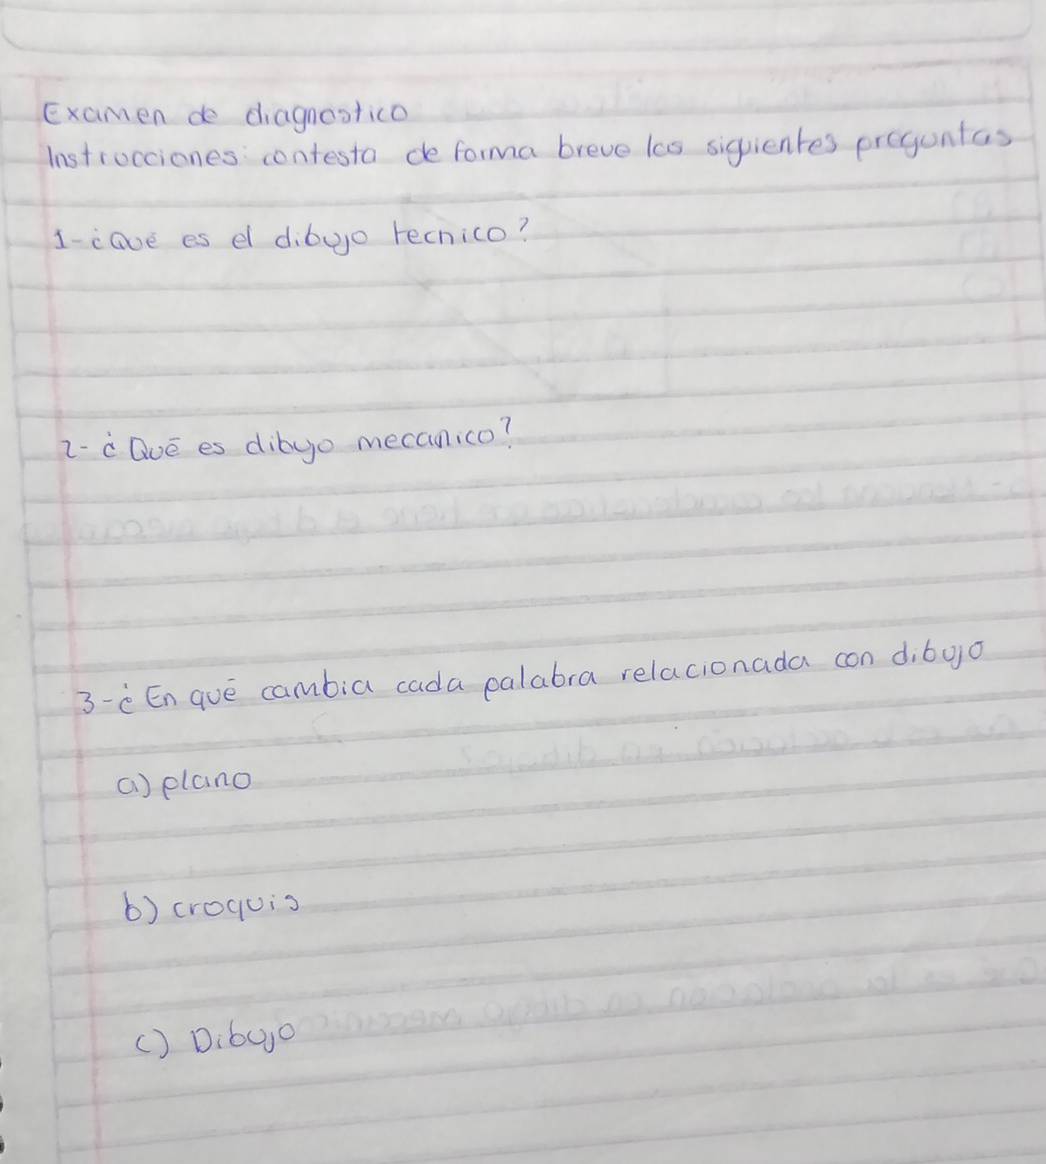 Examen de diagnostico
Instrucciones: contesta de forma breve las siguientes preguntas
1-¿Qué es el dibujo tecnico?
2-¿Qué es dibujo mecanico?
3-¿En qué cambia cada palabra relacionada con dibujo
a) plano
b) croquis
c) Dibujo